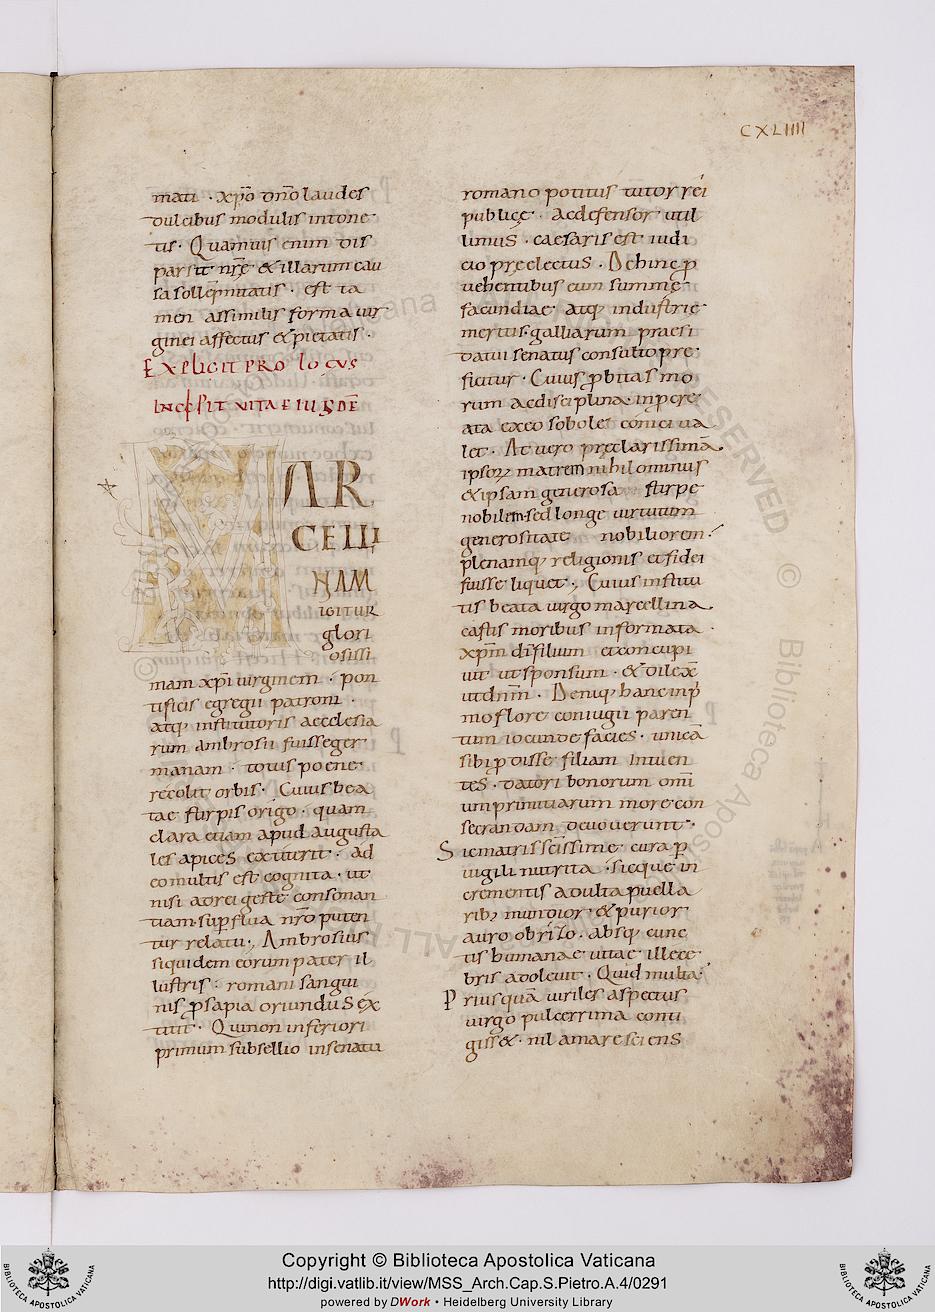 CXLIIII
mati · xp̄o dn̄o laudes
dulcibus modulis intone
tis · Quamuis enim dis
par sit nr̄ę & illarum cau
sa sollēpnitatis · est ta
men assimilis forma uir
ginei affectus & pietatis ·
EXPLICIT PROLOGVS
INCIPIT VITA EIUSDĒ
MAR
CELLI
NAM
IGITUR
glori
osissi
mam xp̄i uirginem · pon
tificis egregii patroni ·
atq; institutoris aecclesia
rum ambrosii fuisse ger
manam · totus poene
recolit orbis · Cuius bea
tae stirpis origo · quam
clara etiam apud augusta
les apices extiterit · ad
eo multis est cognita · ut
nisi aorei geste consonan
tiam · sup̄flua nr̄o puten
tur relatu · Ambrosius
siquidem eorum pater il
lustris · romani sangui
nis p̄sapia oriundus ex
titit · Qui non inferiori
primum subsellio in senatu
romano potitus tutor rei
publicę · ac defensor util
limus · caesaris est iudi
cio preelectus · Dehinc p̄
uehentibus eum summę
facundiae atq; industrię
meritis · galliarum praesi
datui senatus consulto pre
ficitur · Cuius p̄bitas mo
rum ac disciplina inp̄cre
ata ex eo sobole conici ua
let · At uero preclarissimā
ipsoꝝ matrem nihilominus
ex ipsam generosa stirpe
nobilem · sed longe uirtutum
generositate nobiliorem ·
plenamq; religionis et fidei
fuisse liquet · Cuius institu
tis beata uirgo marcellina
castis moribus informata ·
xpm̄ dī filium et concupi
uit ut sponsum · & dilex̄
ut dnm̄ · Deniq; hanc inp̄
mo flore coniugii paren
tum iocunde facies · unicā
sibi p̄disse filiam intuen
tes · datori bonorum omī
um primitiarum more con
secrandam deuouerunt ·
Sic matris scīssime cura p̄
uigili nutrita · sicque in
crementis adulta puella
rib; mundior · & purior
auro obrizo · absq; cunc
tis humanae uitae illece
bris adoleuit · Quid multa ·
Priusquā uiriles aspectus
uirgo pulcerrima conti
giss& · nil amare sciens
Copyright © Biblioteca Apostolica Vaticana
http://digi.vatlib.it/view/MSS_Arch.Cap.S.Pietro.A.4/0291
powered by DWork • Heidelberg University Library
BIBLIOTECA APOSTOLICA VATICANA
BIBLIOTECA APOSTOLICA VATICANA